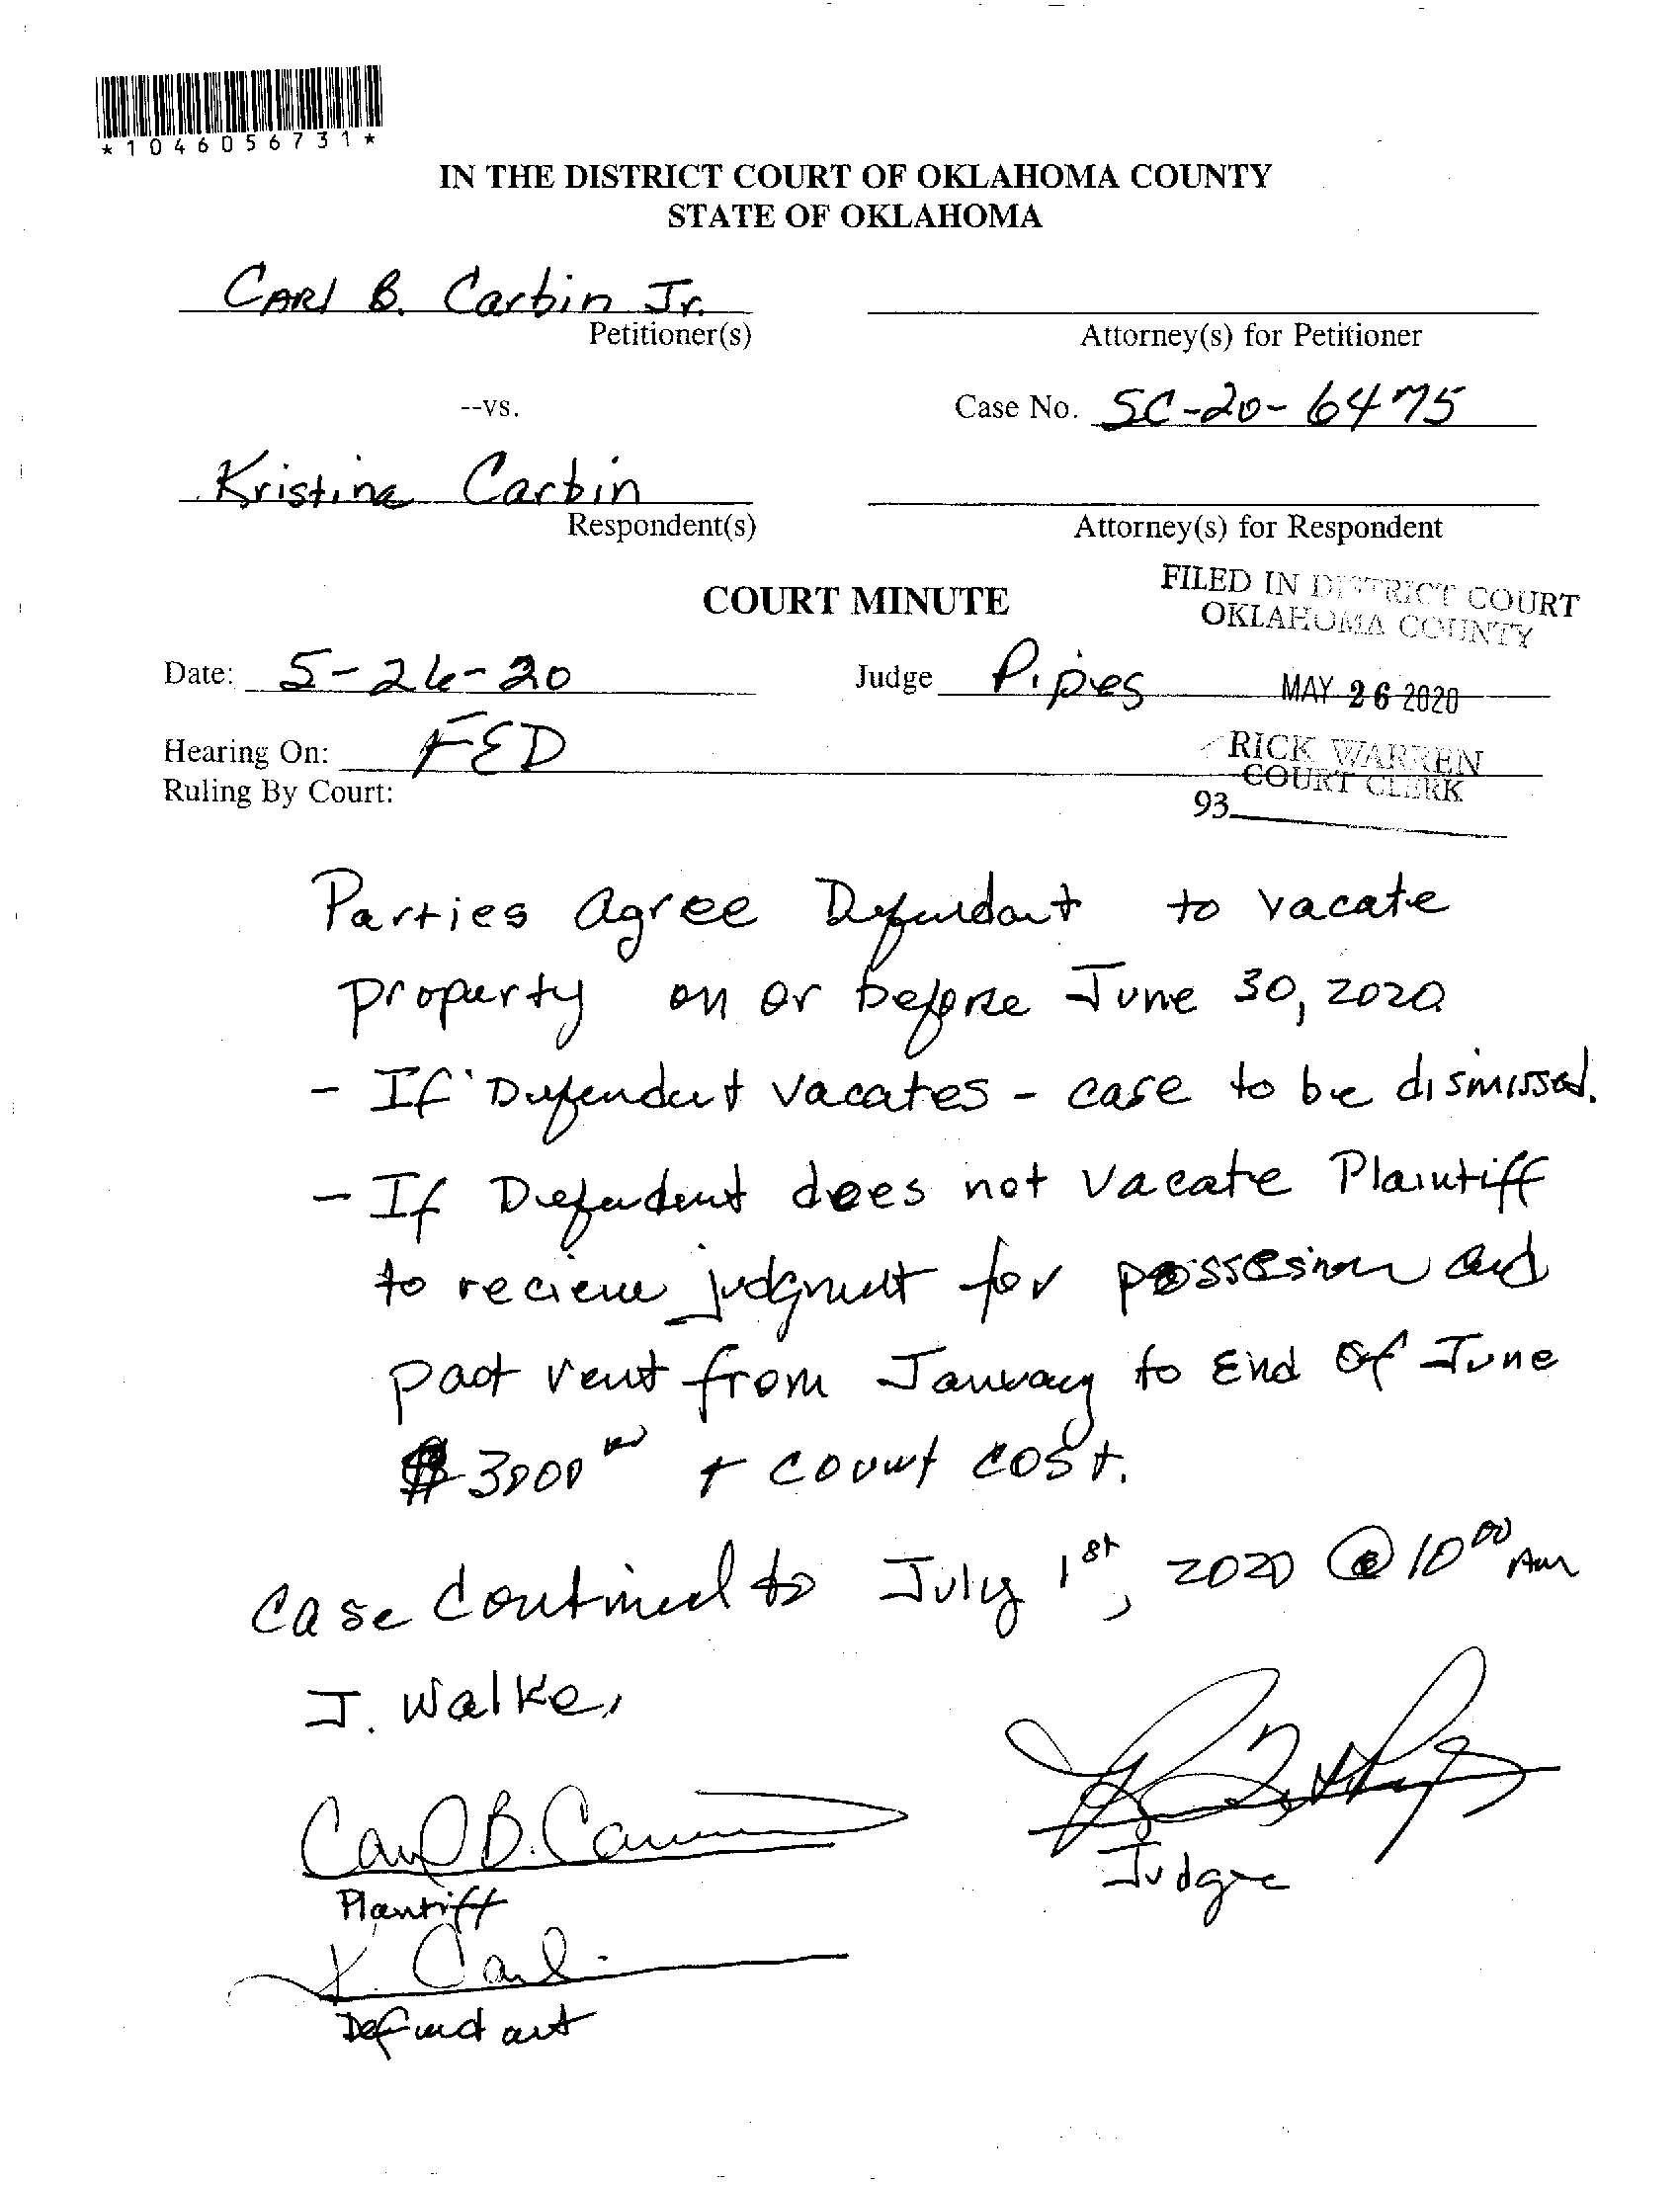 *1046056731*
IN THE DISTRICT COURT OF OKLAHOMA COUNTY
STATE OF OKLAHOMA
CARl B. Carbin Jr.
Petitioner(s)
Attorney(s) for Petitioner
--vs.
Case No. SC-20-6475
Kristina Carbin
Respondent(s)
Attorney(s) for Respondent
COURT MINUTE
FILED IN DISTRICT COURT
OKLAHOMA COUNTY
Date: 5-26-20
Judge Pipes
MAY 26 2020
Hearing On: FED
RICK WARREN
COURT CLERK
Ruling By Court:
93
Parties agree Defendant to vacate
property on or before June 30, 2020
- If Defendant vacates - case to be dismissed.
- If Defendant does not vacate Plaintiff
to recieve judgment for possession and
past rent from January to End of June
$3000 00 + court cost.
Case continued to July 1st, 2020 @ 10 00 Am
J. Walker
Carl B. Car
Plantiff
Judge
K. Carbin
Defendant